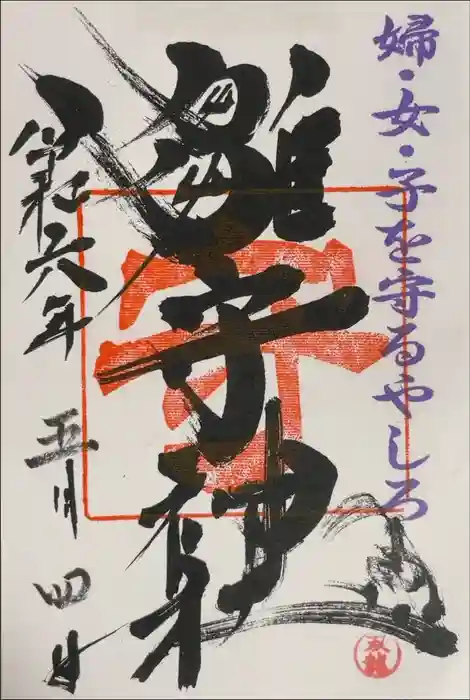 婦・女・子を守るやしろ
雛守神社
令和六年
五月四日
守